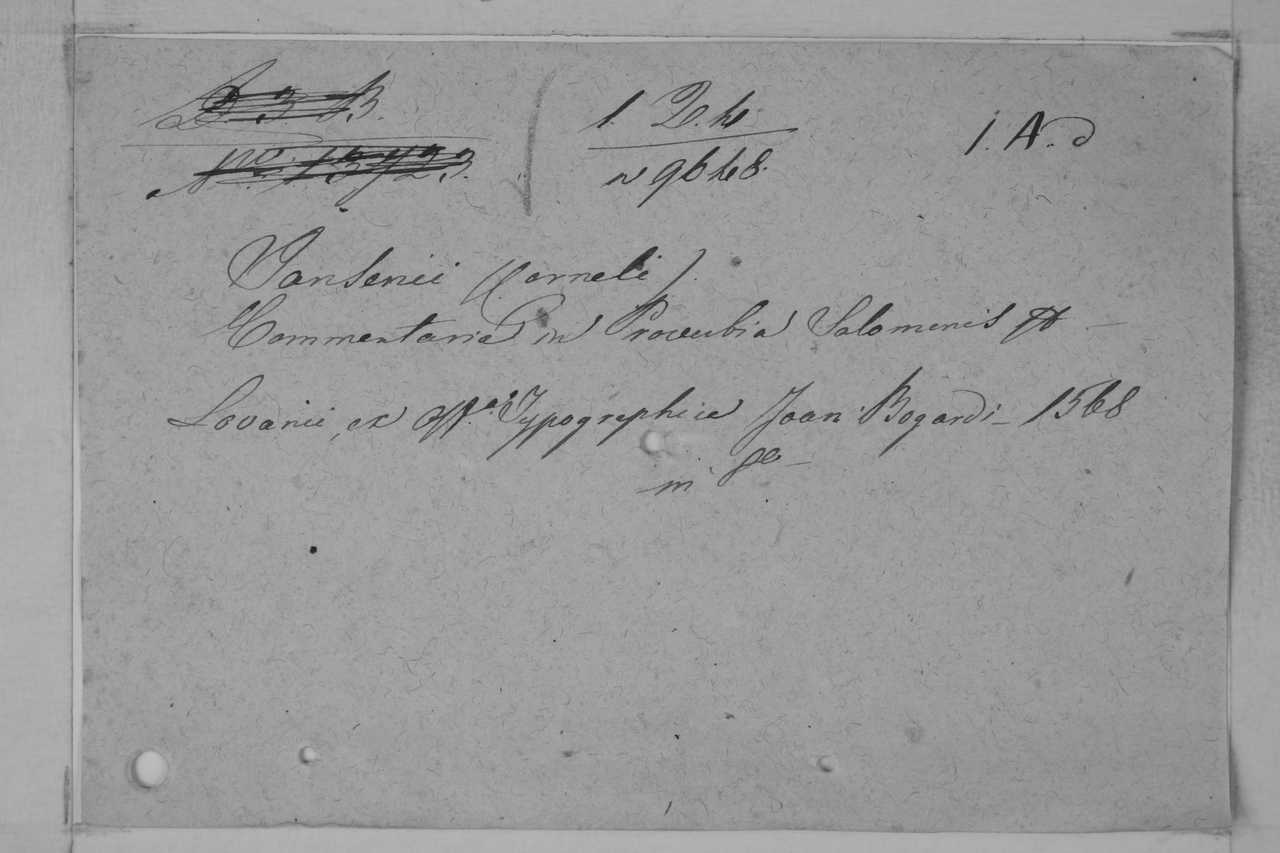 B. 3. B.
Nº. 15723.
1. D. 4
n 9648.
1. A. d
Jansenii (Corneli).
Commentaria in Proverbia Salomonis
Lovanii, ex Offª. Typographica Joan. Bogardi - 1568
in 8º -